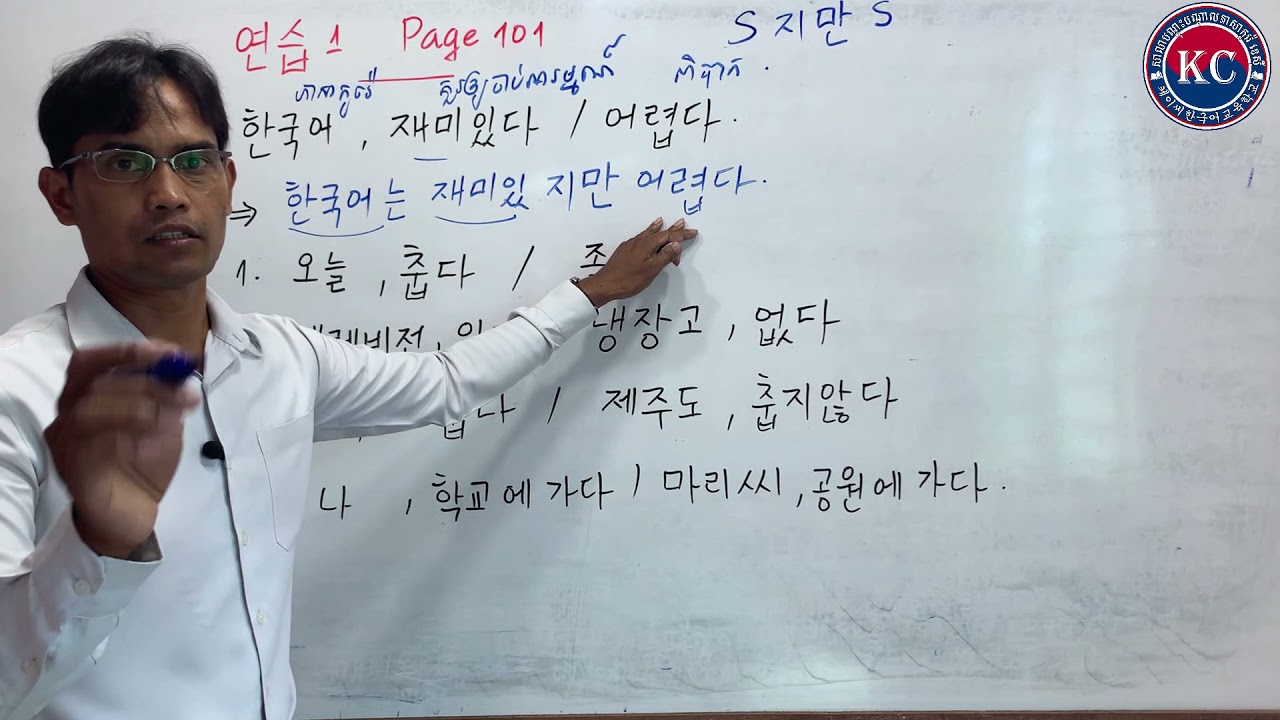 연습 1 Page 101 S 지만 S
ភាសាកូរ៉េ គួរឲ្យចាប់អារម្មណ៍ ពិបាក .
한국어 , 재미있다 / 어렵다.
⇒ 한국어는 재미있 지만 어렵다.
1. 오늘 , 춥다 /
냉장고 , 없다
/ 제주도 , 춥지않다
나 , 학교에 가다 / 마리씨 , 공원에 가다 .
KC
케이씨 한국어 교육학교